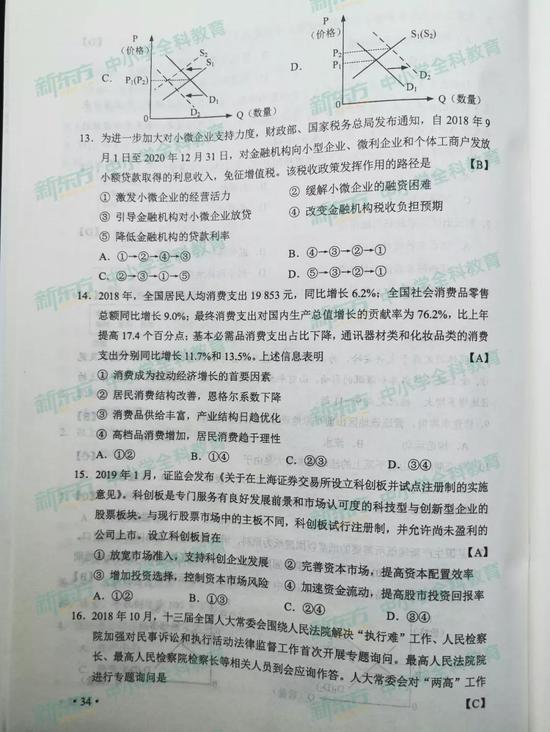 P
(价格)
S₂
S₁
P₁(P₂)
C.
D₁
D₂
0
Q（数量）
P
(价格)
S₁(S₂)
P₂
P₁
D.
D₂
D₁
0
Q（数量）
13. 为进一步加大对小微企业支持力度，财政部、国家税务总局发布通知，自 2018 年 9
月 1 日至 2020 年 12 月 31 日，对金融机构向小型企业、微利企业和个体工商户发放
小额贷款取得的利息收入，免征增值税。该税收政策发挥作用的路径是 【B】
① 激发小微企业的经营活力 ② 缓解小微企业的融资困难
③ 引导金融机构对小微企业放贷 ④ 改变金融机构税收负担预期
⑤ 降低金融机构的贷款利率
A. ①→②→④→③ B. ④→③→②→①
C. ②→③→①→⑤ D. ⑤→③→②→①
14. 2018 年，全国居民人均消费支出 19 853 元，同比增长 6.2%；全国社会消费品零售
总额同比增长 9.0%；最终消费支出对国内生产总值增长的贡献率为 76.2%，比上年
提高 17.4 个百分点；基本必需品消费支出占比下降，通讯器材类和化妆品类的消费
支出分别同比增长 11.7%和 13.5%。上述信息表明 【A】
① 消费成为拉动经济增长的首要因素
② 居民消费结构改善，恩格尔系数下降
③ 消费品供给丰富，产业结构日趋优化
④ 高档品消费增加，居民消费趋于理性
A. ①② B. ①④ C. ②③ D. ③④
15. 2019 年 1 月，证监会发布《关于在上海证券交易所设立科创板并试点注册制的实施
意见》。科创板是专门服务有良好发展前景和市场认可度的科技型与创新型企业的
股票板块。与现行股票市场中的主板不同，科创板试行注册制，并允许尚未盈利的
公司上市。设立科创板旨在 【A】
① 放宽市场准入，支持科创企业发展 ② 完善资本市场，提高资本配置效率
③ 增加投资选择，控制资本市场风险 ④ 加速资金流动，提高股市投资回报率
A. ①② B. ①③ C. ②④ D. ③④
16. 2018 年 10 月，十三届全国人大常委会围绕人民法院解决“执行难”工作、人民检察
院加强对民事诉讼和执行活动法律监督工作首次开展专题询问。最高人民法院院
长、最高人民检察院检察长等相关人员到会应询作答。人大常委会对“两高”工作
进行专题询问是 【C】
· 34 ·
新东方 中小学全科教育
新东方 中小学全科教育
新东方 中小学全科教育
新东方 中小学全科教育